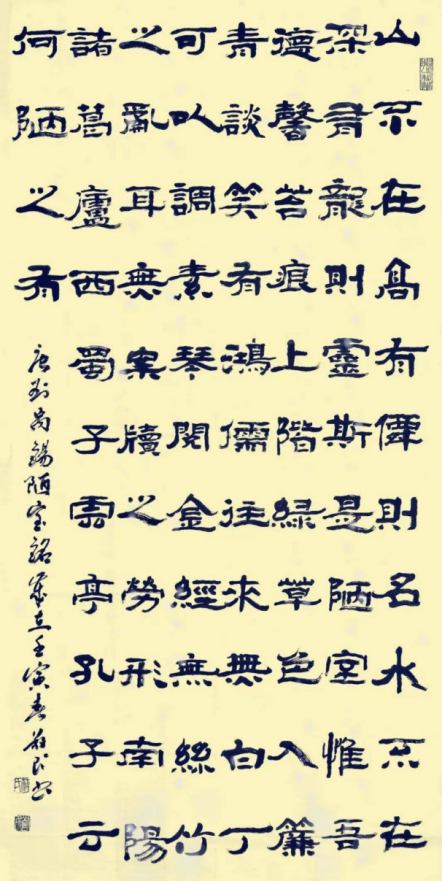 山不在高有僊則名水不在
深有龍則靈斯是陋室惟吾
德馨苔痕上階綠草色入簾
青談笑有鴻儒往來無白丁
可以調素琴閱金經無絲竹
之亂耳無案牘之勞形南陽
諸葛廬西蜀子雲亭孔子云
何陋之有
唐劉禹錫陋室銘歲在壬寅春